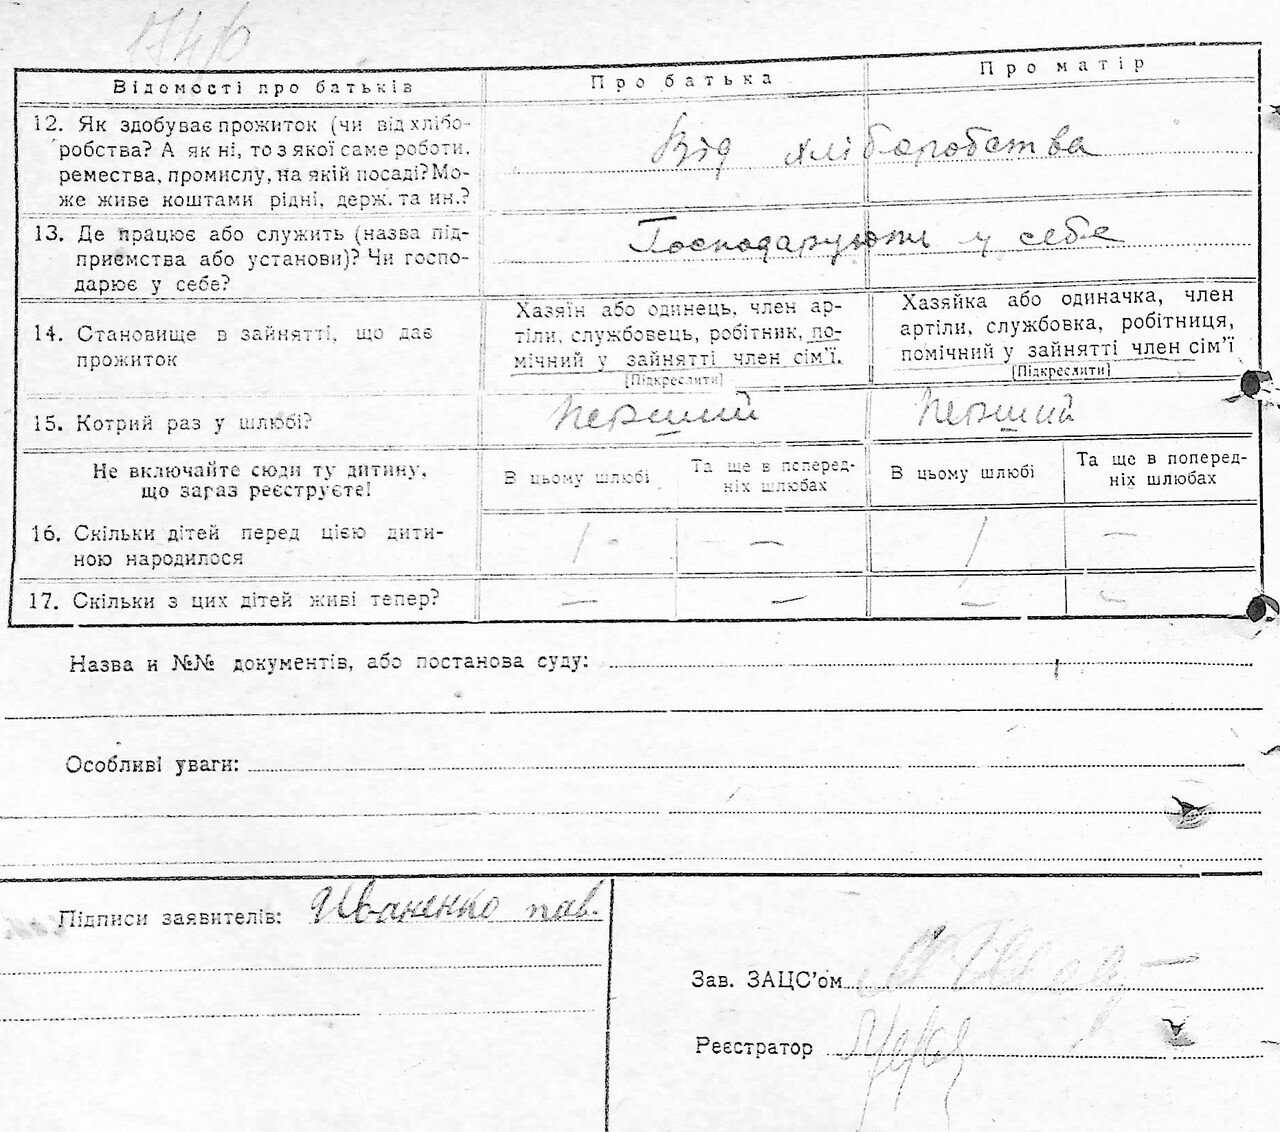 174/б
Відомості про батьків Про батька Про матір
12. Як здобуває прожиток (чи від хлібо-
робства? А як ні, то з якої саме роботи,
ремества, промислу, на якій посаді? Мо-
же живе коштами рідні, держ. та ин.?
Від хліборобства
13. Де працює або служить (назва під-
приємства або установи)? Чи госпо-
дарює у себе?
Господарують у себе
14. Становище в зайнятті, що дає
прожиток
Хазяїн або одинець, член ар-
тіли, службовець, робітник, по-
мічний у зайнятті член сім'ї.
(Підкреслити)
Хазяйка або одиначка, член
артіли, службовка, робітниця,
помічний у зайнятті член сім'ї
(Підкреслити)
15. Котрий раз у шлюбі? Перший Перший
Не включайте сюди ту дитину,
що зараз реєструєте!
В цьому шлюбі
Та ще в поперед-
ніх шлюбах
В цьому шлюбі
Та ще в поперед-
ніх шлюбах
16. Скільки дітей перед цією дити-
ною народилося
1 — 1 —
17. Скільки з цих дітей живі тепер? — — — —
Назва и №№ документів, або постанова суду:
Особливі уваги:
Підписи заявителів: Иваненко пав.
Зав. ЗАЦС'ом
Реєстратор